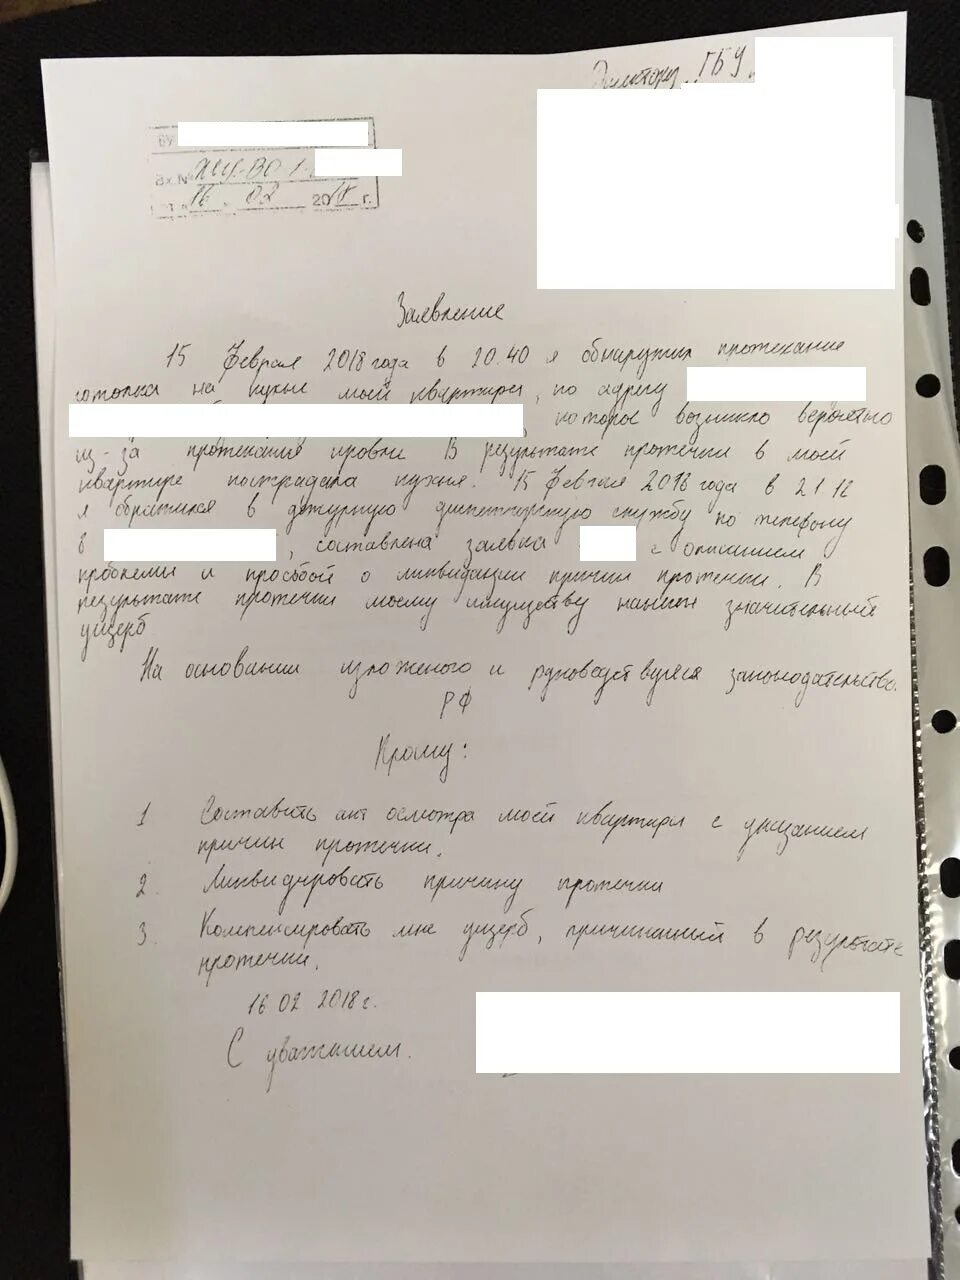 Директору ГБУ
Вх.№ ЖУ-ВО 1-
16 02 2018 г.
Заявление
15 Февраля 2018 года в 20.40 я обнаружил протекание
потолка на кухне моей квартиры, по адресу
, которое возникло вероятно
из-за протекания кровли В результате протечки в моей
квартире пострадала кухня. 15 Февраля 2018 года в 21 12
я обратился в дежурную диспетчерскую службу по телефону
8 , составлена заявка с описанием
проблемы и просьбой о ликвидации причин протечки. В
результате протечки моему имуществу нанесен значительный
ущерб
На основании изложеного и руководствуяся законодательство.
РФ
Прошу:
1 Составить акт осмотра моей квартиры с указанием
причин протечки.
2. Ликвидировать причину протечки
3. Компенсировать мне ущерб, причиненный в результате
протечки.
16 02 2018 г.
С уважением.